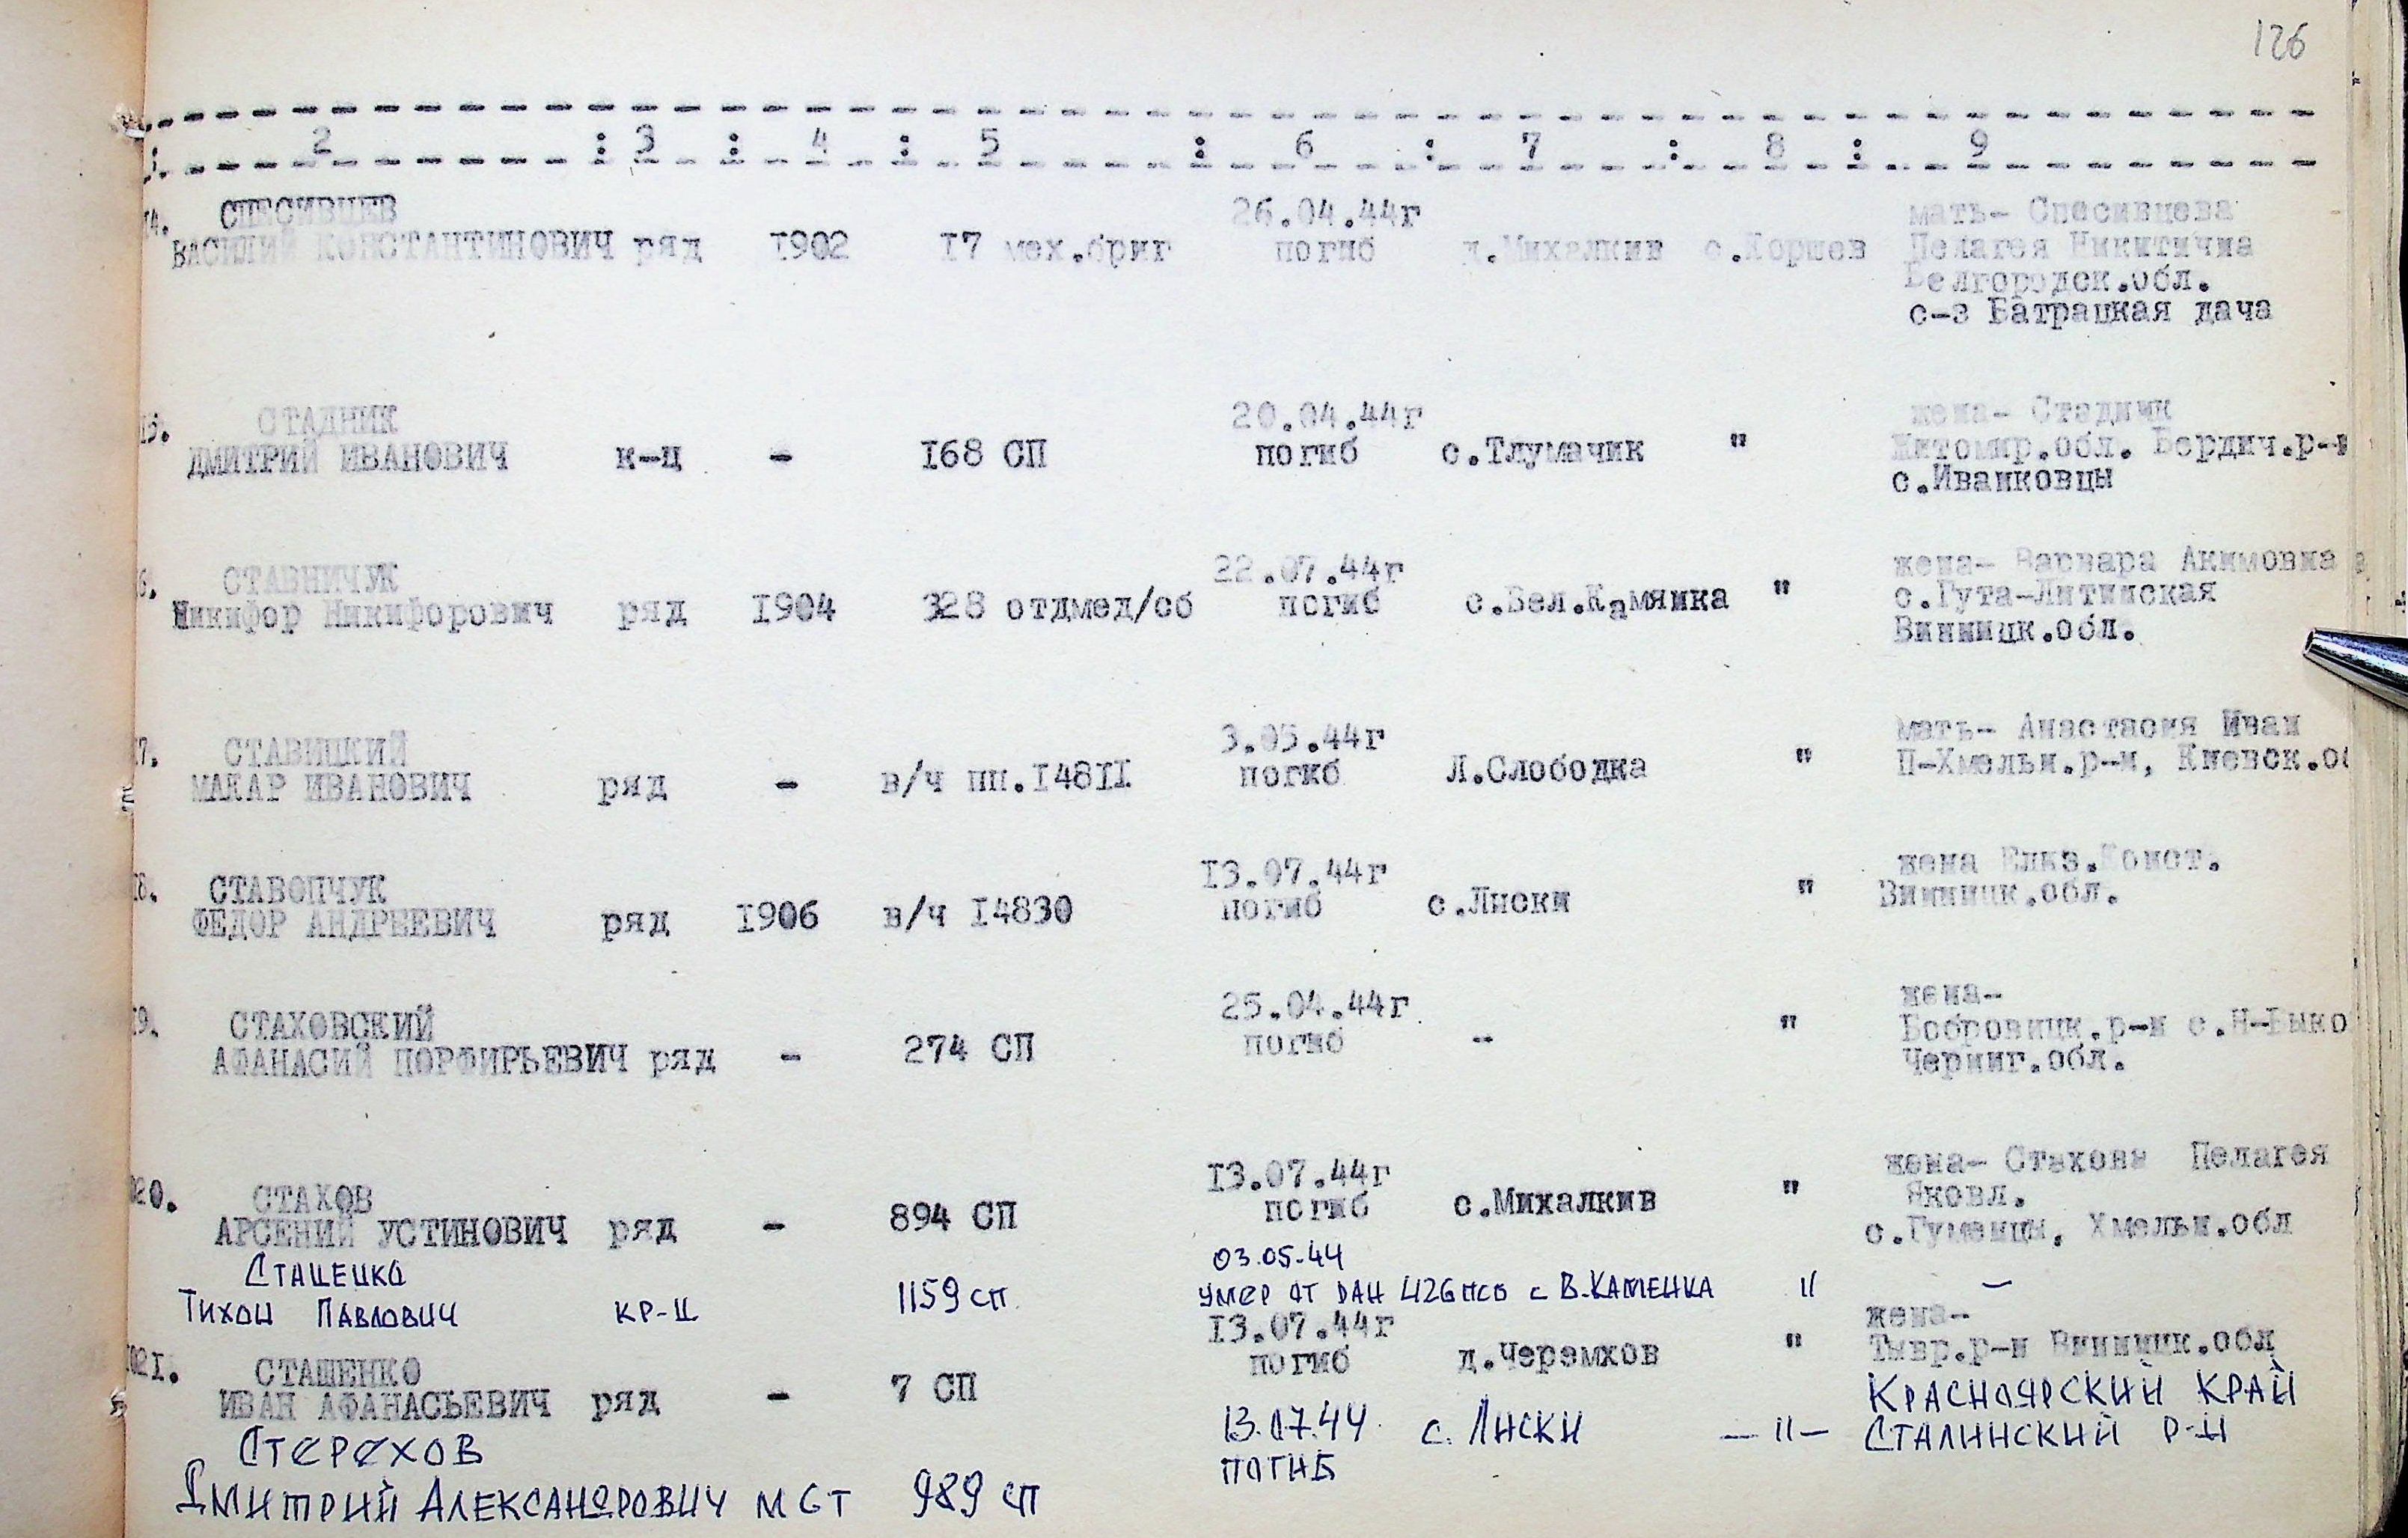 126
2 : 3 : 4 : 5 : 6 : 7 : 8 : 9
14. СПЕСИВЦЕВ 26.04.44г мать- Спесивцева
ВАСИЛИЙ КОНСТАНТИНОВИЧ ряд 1902 17 мех.бриг погиб д.Михалкив с.Коршев Пелагея Никитична
Белгородск.обл.
с-з Батрацкая дача
15. СТАДНИК 20.04.44г жена- Стадник
ДМИТРИЙ ИВАНОВИЧ к-ц - 168 СП погиб с.Тлумачик " Житомир.обл. Бердич.р-н
с.Иванковцы
6. СТАВНИЧУК 22.07.44г жена- Варвара Акимовна
Никифор Никифорович ряд 1904 328 отдмед/сб погиб с.Вел.Камянка " с.Гута-Литинская
Винницк.обл.
7. СТАВИЦКИЙ 3.05.44г мать- Анастасия Иван
МАКАР ИВАНОВИЧ ряд - в/ч пп.14811 погиб Л.Слободка " П-Хмельн.р-н, Киевск.об
18. СТАВОПЧУК 13.07.44г жена Елиз.Конст.
ФЕДОР АНДРЕЕВИЧ ряд 1906 в/ч 14830 погиб с.Лиски " Винницк.обл.
19. СТАХОВСКИЙ 25.04.44г жена-
АФАНАСИЙ ПОРФИРЬЕВИЧ ряд - 274 СП погиб - " Бобровицк.р-н с.Н-Быко
Черниг.обл.
020. СТАХОВ 13.07.44г жена- Стахова Пелагея
АРСЕНИЙ УСТИНОВИЧ ряд - 894 СП погиб с.Михалкив " Яковл.
с.Гуменцы, Хмельн.обл
Стаценко 03.05.44
Тихон Павлович КР-Ц 1159 сп. умер от ран 426 ПСБ с В.Каменка " –
021. СТАШЕНКО 13.07.44г жена-
ИВАН АФАНАСЬЕВИЧ ряд - 7 СП погиб д.Черемхов " Тывр.р-н Винницк.обл
Стерехов 13.07.44. с. Лиски – " – Красноярский край
Дмитрий Александрович м с т 989 сп погиб Сталинский р-н